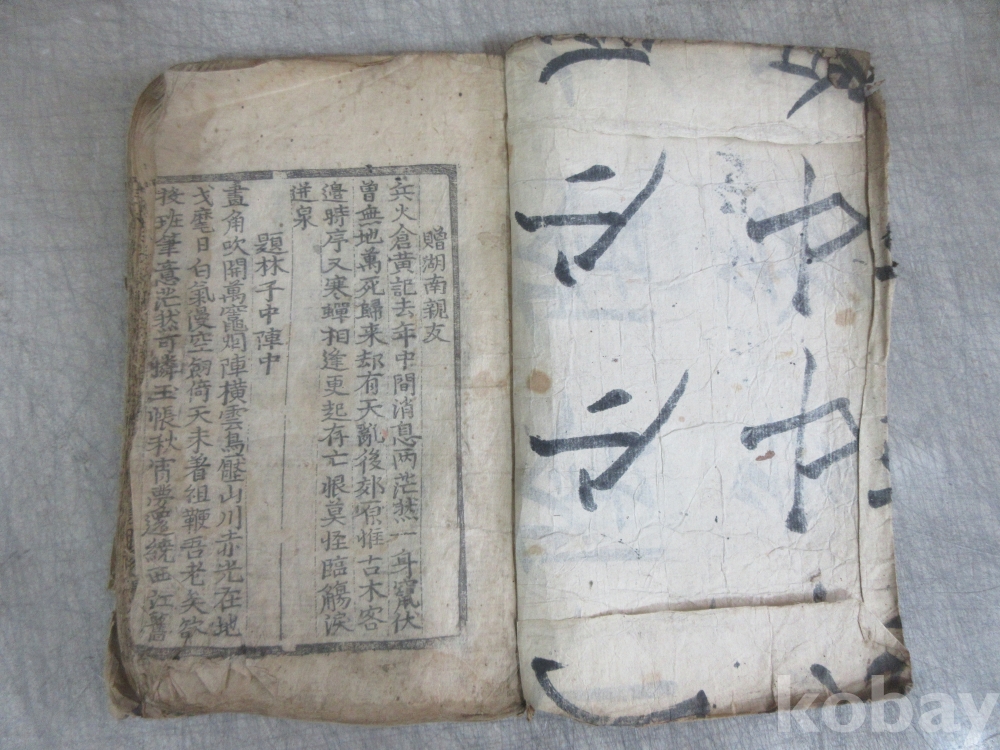 中
中
贈湖南親友
兵火倉黃記去年中間消息兩茫然一身竄伏
曾無地萬死歸来却有天亂後郊原惟古木客
邊時序又寒蟬相逢更起存亡恨莫怪臨觴淚
迸泉
題林子中陣中
畫角吹開萬竈烟陣橫雲鳥壓山川赤光在地
戈麾日白氣漫空劒倚天未著祖鞭吾老矣
投班筆意茫然可憐玉帳秋宵夢繞西江舊
kobay